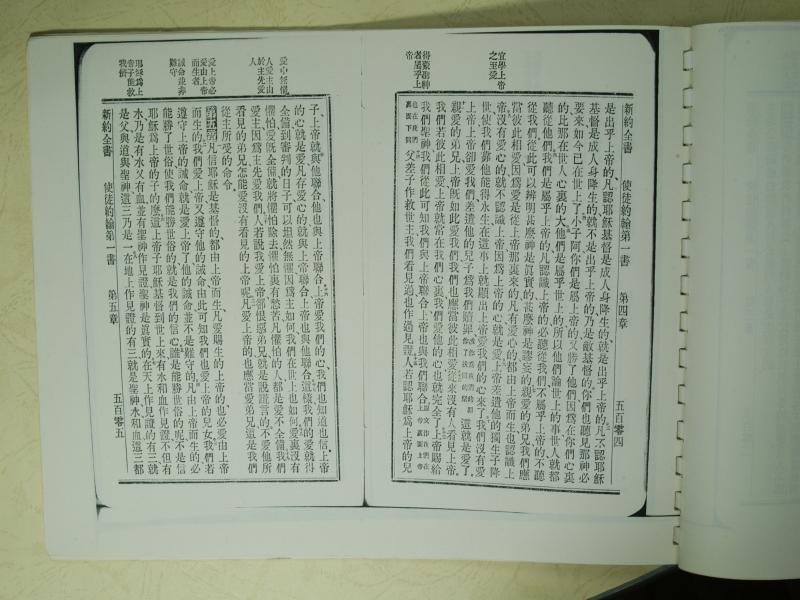 新約全書 使徒約翰第一書 第四章 五百零四
是出乎上帝的凡認耶穌基督是成人身降生的就是出乎上帝的凡不認耶穌
基督是成人身降生的就不是出乎上帝的乃是敵基督的你們也聽見那神必
要來如今已在世上了小子阿你們是屬上帝的又勝了他們因爲在你們心裏
的比那在世人心裏的大他們是屬乎世上的所以他們論世上的事世人就都
聽從他們我們是屬乎上帝的凡認識上帝的必聽從我們不屬乎上帝的不聽
從我們從此可以辨明甚麽神是眞實的甚麽神是謬妄的親愛的弟兄我們應
當彼此相愛因爲愛是從上帝那裏來的凡有愛心的都由上帝而生也認識上
帝沒有愛心的就不認識上帝因爲上帝的心就是愛上帝差遣他的獨生子降
世使我們靠他能得永生在這事上就顯出上帝愛我們的心來了我們沒有愛
上帝上帝卻愛我們差遣他的兒子爲我們贖罪 這就是愛了
親愛的弟兄上帝旣如此愛我們我們也應當彼此相愛從來沒有人看見上帝
我們若彼此相愛上帝就常在我們心裏我們愛他的心也就完全了上帝賜給
我們聖神我們從此可知我們與上帝聯合上帝也與我們聯合
父差子作救世主我們看見過也作過見證人若認耶穌爲上帝的兒
宜學上帝之至愛
得蒙聖神者屬乎上帝
子上帝就與他聯合他也與上帝聯合上帝愛我們的心我們也知道也信上帝
的心就是愛凡存愛心的就與上帝聯合上帝也與他聯合這樣我們的愛就得
全備到審判的日子可以坦然無懼因爲主如何我們在世上也如何愛裏沒有
懼怕愛旣全備就將懼怕除去懼怕裏有愁苦凡懼怕的人都是愛不全備我們
愛主因爲主先愛我們人若說我愛上帝卻恨惡弟兄就是說謊言的不愛他所
看見的弟兄怎能愛沒有看見的上帝呢凡愛上帝的也應當愛弟兄這是我們
從主所受的命令
第五章凡信耶穌是基督的都由上帝而生凡愛賜生的上帝的也必愛由上帝
而生的我們愛上帝又遵守他的誡命由此可知我們也愛上帝的兒女我們若
遵守上帝的誡命就是愛上帝了他的誡命並不是難守的凡由上帝而生的必
能勝了世俗使我們能勝世俗的就是我們的信心誰是能勝世俗的呢不是信
耶穌爲上帝的子的麽這上帝子耶穌基督到世上來有水和血作見證不但有
水乃是有水又有血並有聖神作見證聖神是眞實的在天上作見證的有三就
是父與道與聖神這三乃是一在地上作見證的有三就是聖神和水和血這三都
新約全書 使徒約翰第一書 第五章 五百零五
愛中無懼
人愛主由於主先愛人
愛上帝必愛由上帝而生者
誡命並非難守
耶穌爲上帝子能救我儕